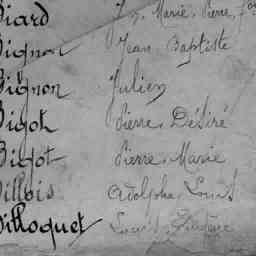 Biard Jn Marie, Pierre, fois
Bignon Jean Baptiste
Bignon Julien
Bigot Pierre, Désiré
Bigot Pierre, Marie
Billois Adolphe, Louis
Billoquet Louis,